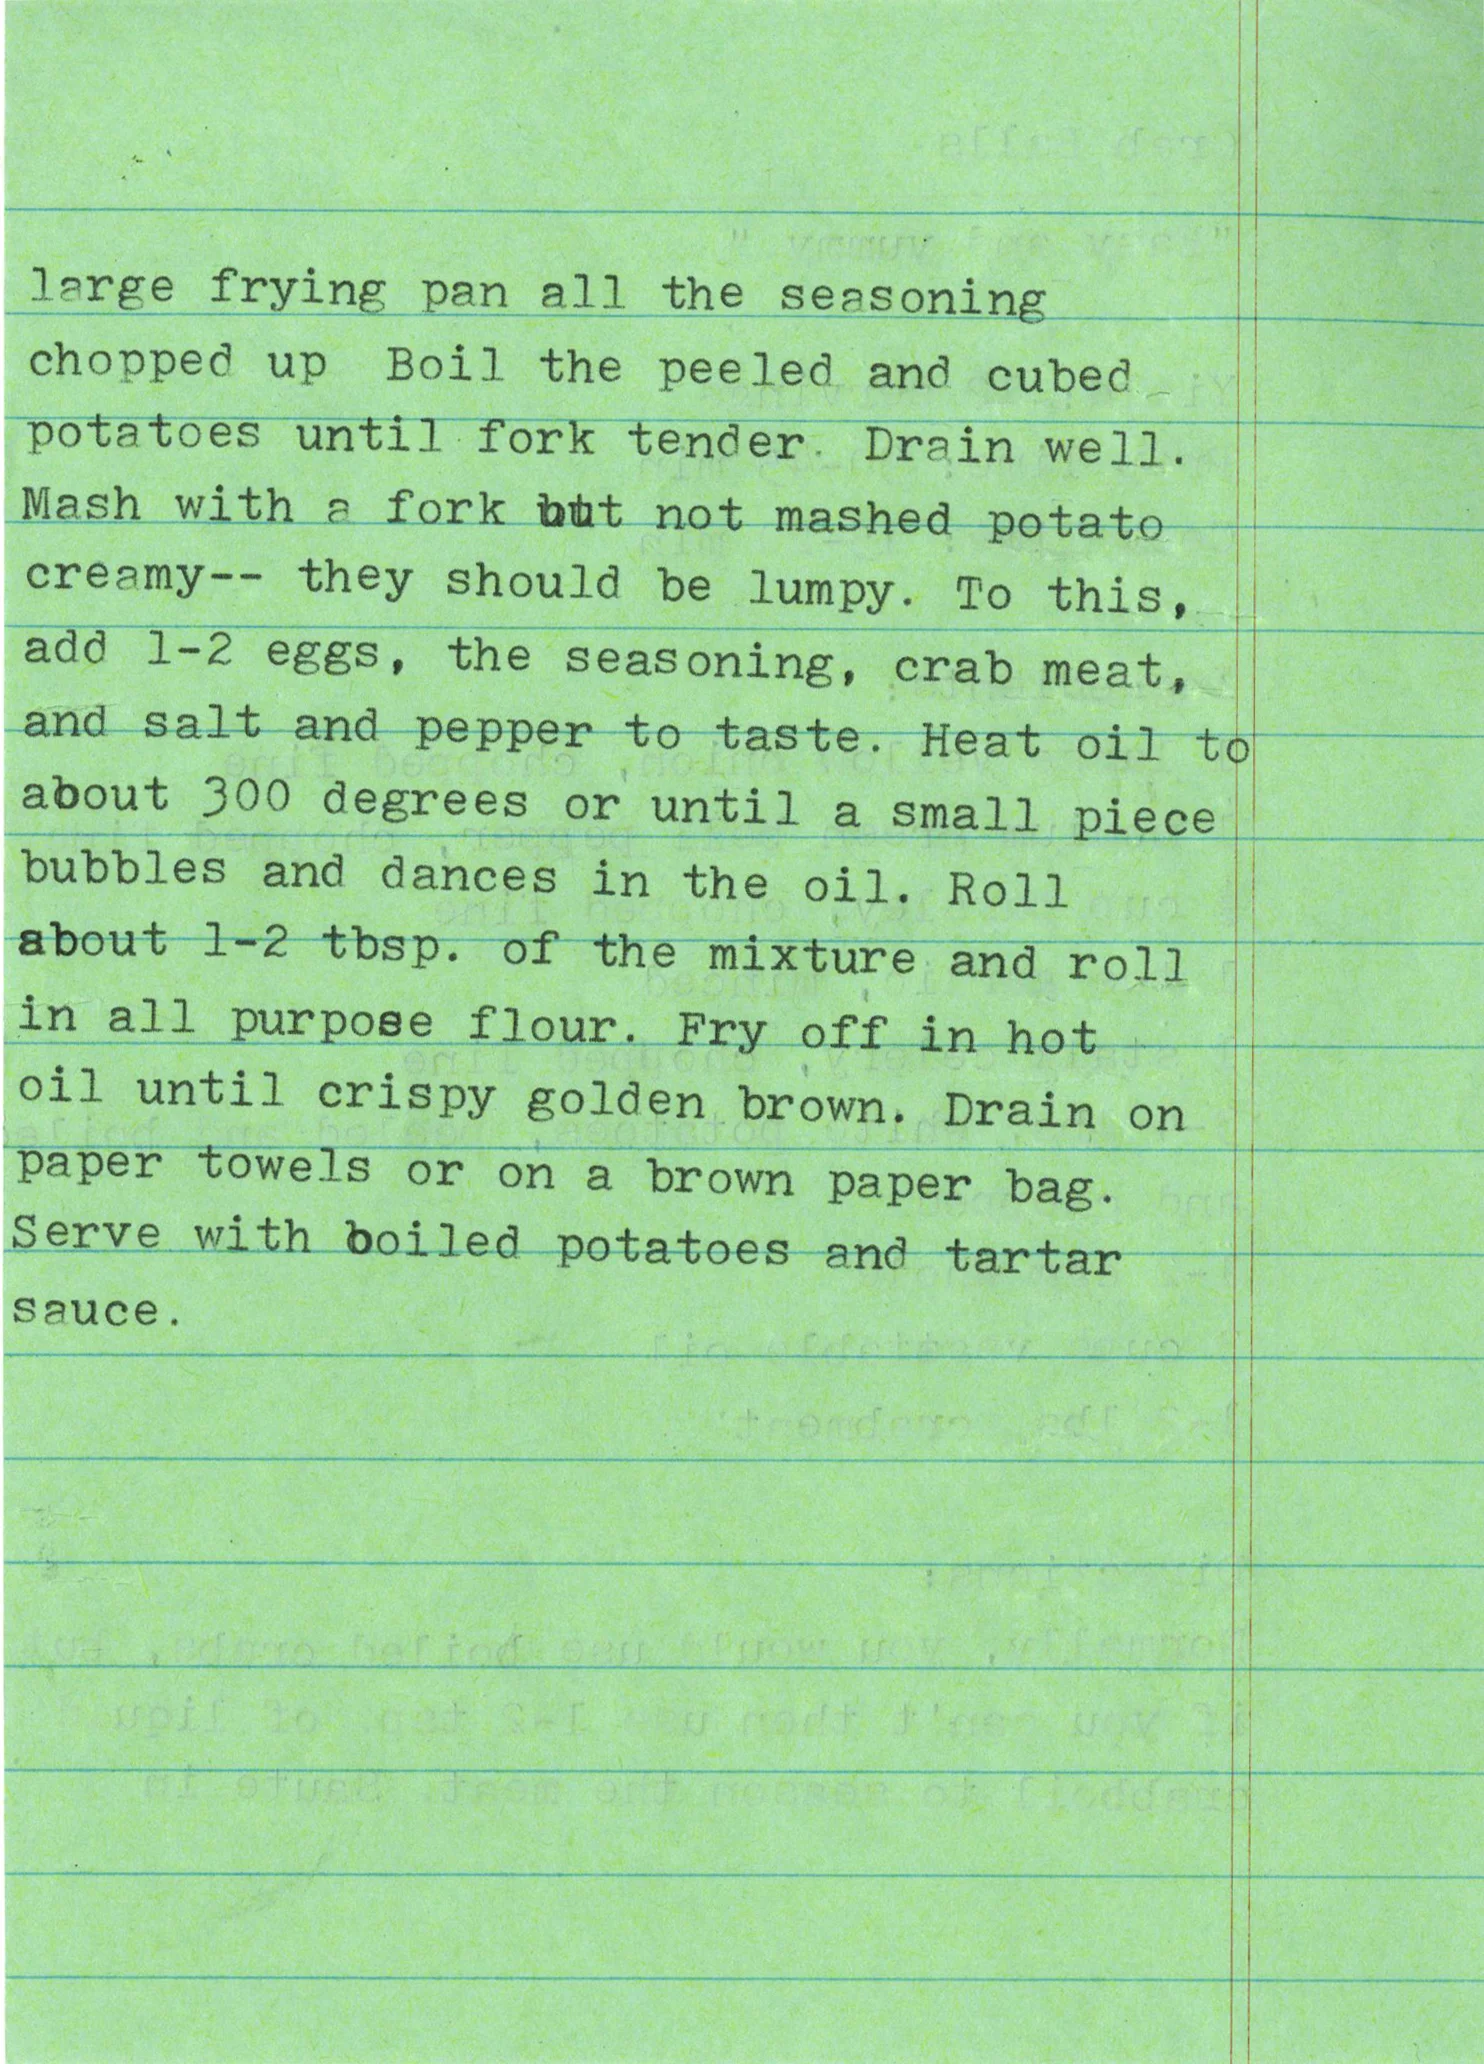 large frying pan all the seasoning
chopped up Boil the peeled and cubed
potatoes until fork tender. Drain well.
Mash with a fork but not mashed potato
creamy-- they should be lumpy. To this,
add 1-2 eggs, the seasoning, crab meat,
and salt and pepper to taste. Heat oil to
about 300 degrees or until a small piece
bubbles and dances in the oil. Roll
about 1-2 tbsp. of the mixture and roll
in all purpose flour. Fry off in hot
oil until crispy golden brown. Drain on
paper towels or on a brown paper bag.
Serve with boiled potatoes and tartar
sauce.